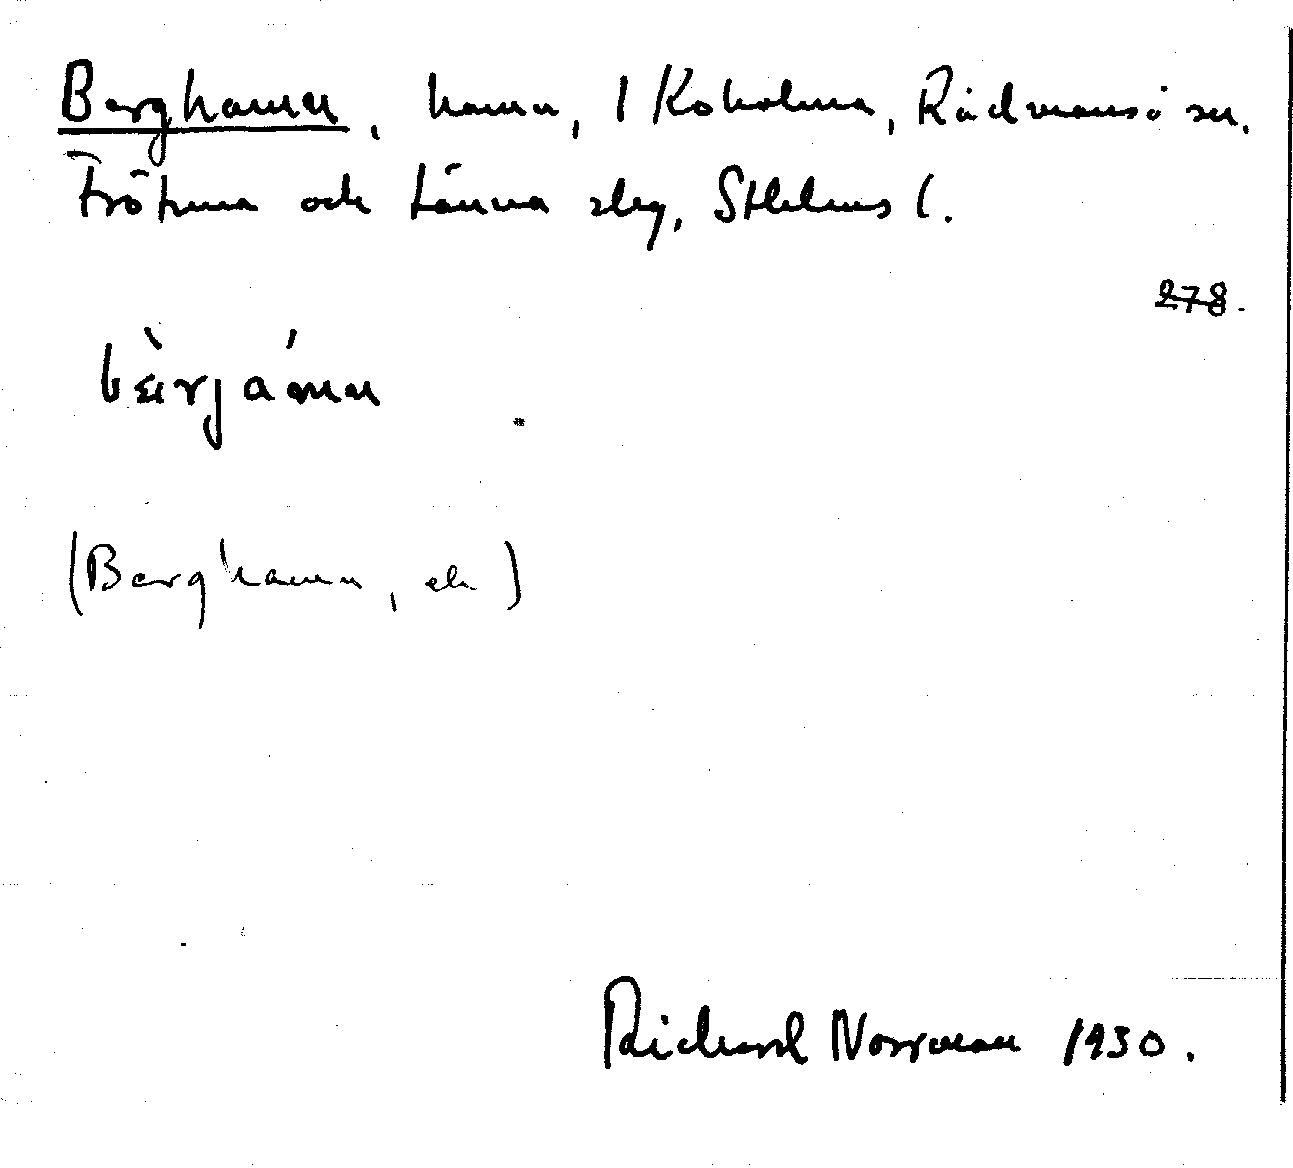 Berghamn, hamn, 1 Koholma, Rådmansö sn.
Frötuna och Länna slg, Sthlms l.
278.
bæ̀rjámn
(Berghamn, ek)
Richard Norrman 1930.